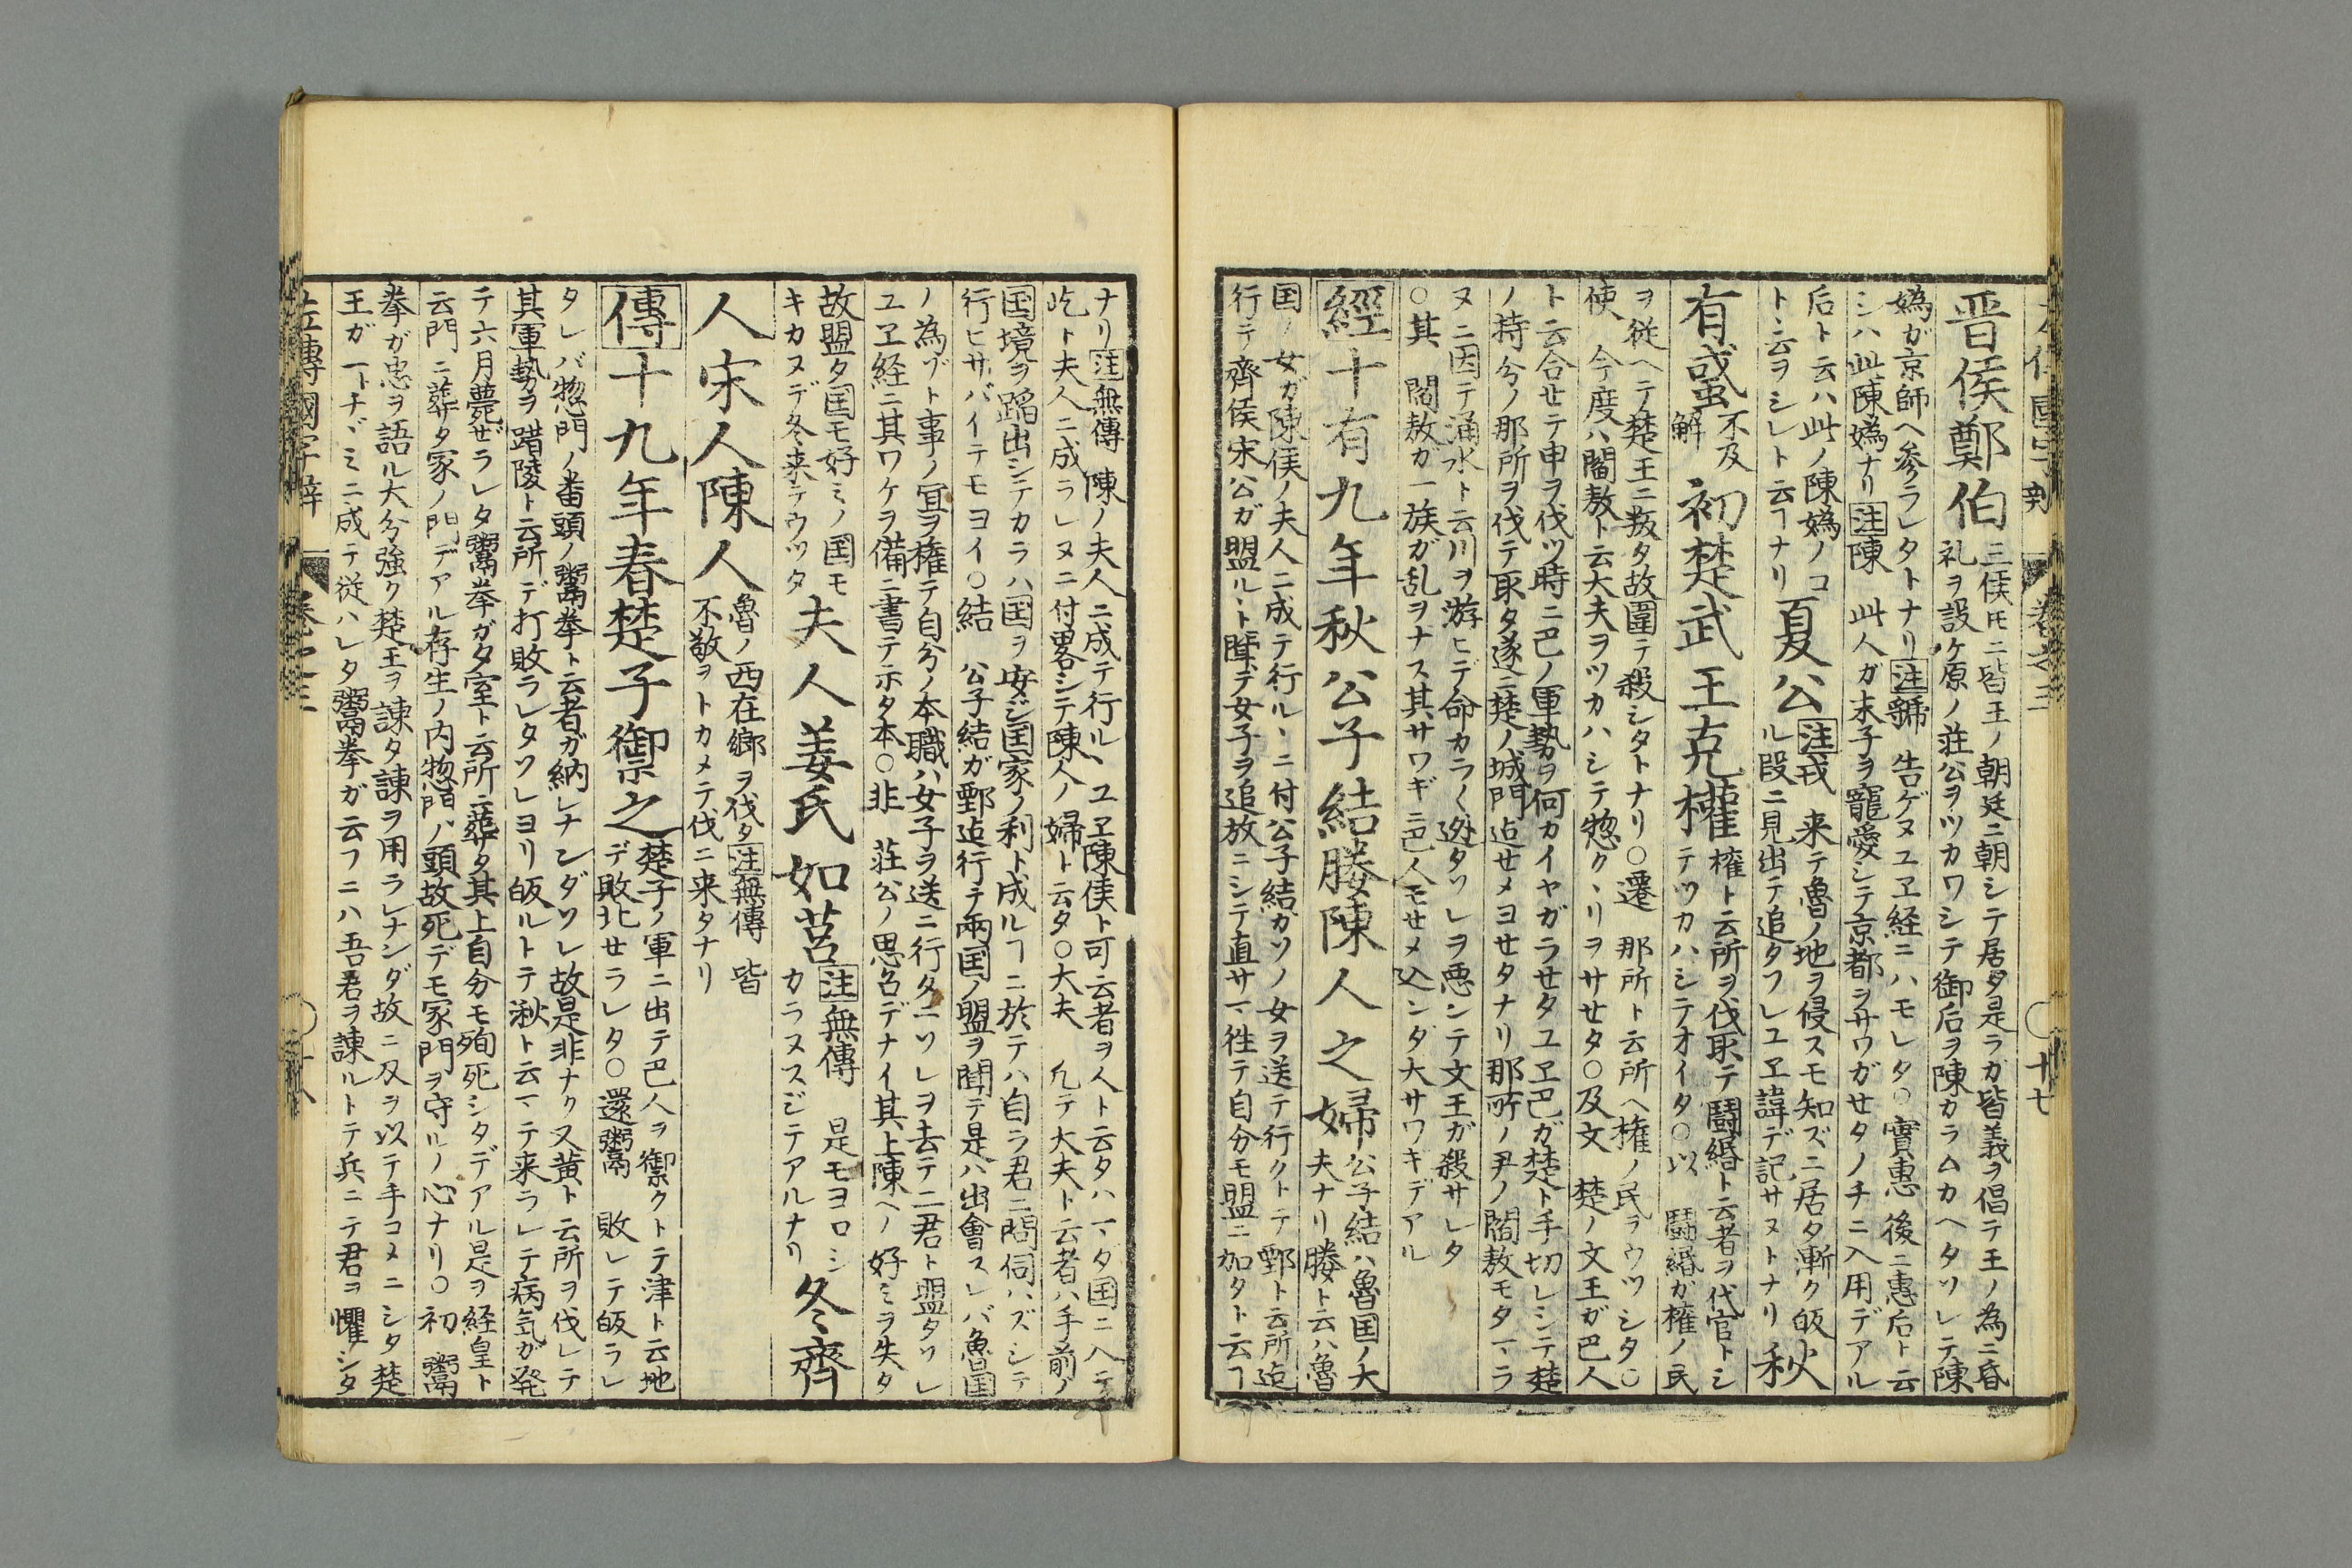 晋侯鄭伯
三侯𪜈ニ皆王ノ朝廷ニ朝シテ居タ是ラガ皆義ヲ倡テ王ノ為ニ昏
礼ヲ設ケ原ノ荘公ヲツカワシテ御后ヲ陳カラムカヘタソレテ陳
媯ガ京師ヘ参ラレタトナリ注虢 告ゲヌユヱ経ニハモレタ○實惠 後ニ惠后ト云
シハ此陳媯ナリ注陳 此人ガ末子ヲ寵愛シテ京都ヲサワガセタノチニ入用デアル
后ト云ハ此ノ陳媯ノコ
ト云ヲシレト云ヿナリ
夏公
注戎 来テ魯ノ地ヲ侵スモ知ズニ居タ漸ク皈ト
ル段ニ見出テ追タフレユヱ諱デ記サヌトナリ
秋
有蜮
不及
解
初楚武王克權
権ト云所ヲ伐取テ鬪緡ト云者ヲ代官トシ
テツカハシテオイタ○以 鬪緡ガ権ノ民
ヲ従ヘテ楚王ニ叛タ故圍テ殺シタトナリ○遷 那所ト云所ヘ権ノ民ヲウツシタ○
使 今度ハ閻敖ト云大夫ヲツカハシテ惣クヽリヲサセタ○及文 楚ノ文王ガ巴人
ト云合セテ申ヲ伐ツ時ニ巴ノ軍勢ヲ何カイヤガラセタユヱ巴ガ楚ト手切レシニテ楚
ノ持分ノ那所ヲ伐テ取タ遂ニ楚ノ城門迠セメヨセタナリ那所ノ尹ノ閻敖モタマラ
ヌニ因テ涌水ト云川ヲ游ヒデ命カラ〱迯タソレヲ悪ンテ文王ガ殺サレタ
○其 閻敖ガ一族ガ乱ヲナス其サワギニ巴人モセメ込ンダ大サワキデアル
經十有九年秋公子結媵陳人之婦
公子結ハ魯国ノ大
夫ナリ媵ト云ハ魯
国ノ女ガ陳侯ノ夫人ニ成テ行ルヽニ付公子結カソノ女ヲ送テ行クトテ鄄ト云所迠
行テ齊侯宋公ガ盟ルヽト聞テ女子ヲ追放ニシテ直サマ徃テ自分モ盟ニ加タト云ヿ
ナリ注無傳 陳ノ夫人ニ成テ行ルヽユヱ陳侯ト可云者ヲ人ト云タハマダ国ニ入テ
吃ト夫人ニ成ラレヌニ付畧シテ陳人ノ婦ト云タ○大夫 凡テ大夫ト云者ハ手前ノ
国境ヲ踰出シテカラハ国ヲ安ジ国家ノ利ト成ルヿニ於テハ自ラ君ニ問伺ハズシテ
行ヒサバイテモヨイ○結 公子結ガ鄄迠行テ兩国ノ盟ヲ聞テ是ハ出會スレバ魯国
ノ為ヅト事ノ宜ヲ権テ自分ノ本職ハ女子ヲ送ニ行タニソレヲ去テ二君ト盟タソレ
ユヱ経ニ其ワケヲ備ニ書テ示タ本○非 荘公ノ思召デナイ其上陳ヘノ好ミヲ失タ
故盟タ国モ好ミノ国モ
キカヌデ冬来テウツタ
夫人姜氏如莒
注無傳 是モヨロシ
カラヌスジテアルナリ
冬齊
人宋人陳人
魯ノ西在郷ヲ伐タ注無傳 皆
不敬ヲトカメテ伐ニ来タナリ
傳十九年春楚子禦之
楚子ノ軍ニ出テ巴人ヲ禦クトテ津ト云地
デ敗北セラレタ○還鬻 敗レテ皈ラレ
タレバ惣門ノ番頭ノ鬻拳ト云者ガ納レナンダソレ故是非ナク又黄ト云所ヲ伐レテ
其軍勢ヲ踖陵ト云所デ打敗ラレタソレヨリ皈ルトテ秋ト云マテ来ラレテ病気ガ発
テ六月薨ゼラレタ鬻拳ガ夕室ト云所ニ葬タ其上自分モ殉死シタデアル是ヲ経皇ト
云門ニ葬タ冢ノ門デアル存生ノ内惣門ノ頭故死デモ冢門ヲ守ルノ心ナリ○初 鬻
拳ガ忠ヲ語ル大分強ク楚王ヲ諌タ諌ヲ用ラレナンダ故ニ刄ヲ以テ手コメニシタ楚
王ガ一トチヾミニ成テ従ハレタ鬻拳ガ云フニハ吾君ヲ諌ルトテ兵ニテ君ヲ懼シタ
左傳國字辯 巻之三